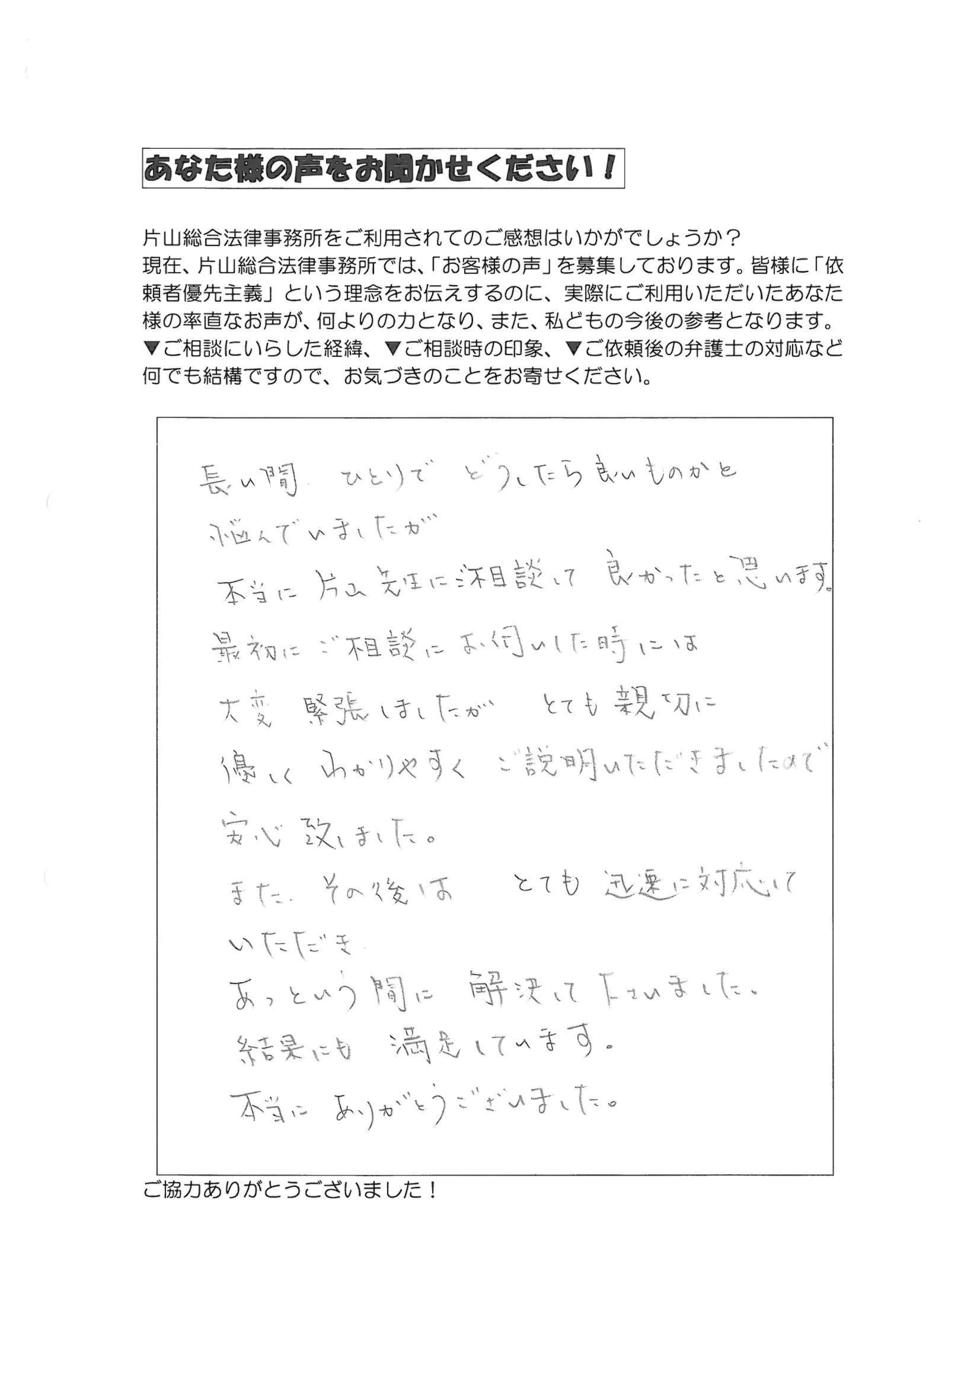 あなた様の声をお聞かせください！
片山総合法律事務所をご利用されてのご感想はいかがでしょうか？
現在、片山総合法律事務所では、「お客様の声」を募集しております。皆様に「依
頼者優先主義」という理念をお伝えするのに、実際にご利用いただいたあなた
様の率直なお声が、何よりの力となり、また、私どもの今後の参考となります。
▼ご相談にいらした経緯、▼ご相談時の印象、▼ご依頼後の弁護士の対応など
何でも結構ですので、お気づきのことをお寄せください。
長い間 ひとりで どうしたら良いものかと
悩んでいましたが
本当に 片山先生にご相談して 良かったと思います。
最初に ご相談に お伺いした時には
大変 緊張しましたが とても親切に
優しく わかりやすく ご説明いただきましたので
安心致しました。
また、その後は とても 迅速に対応して
いただき
あっという間に 解決して下さいました。
結果にも 満足しています。
本当に ありがとうございました。
ご協力ありがとうございました！